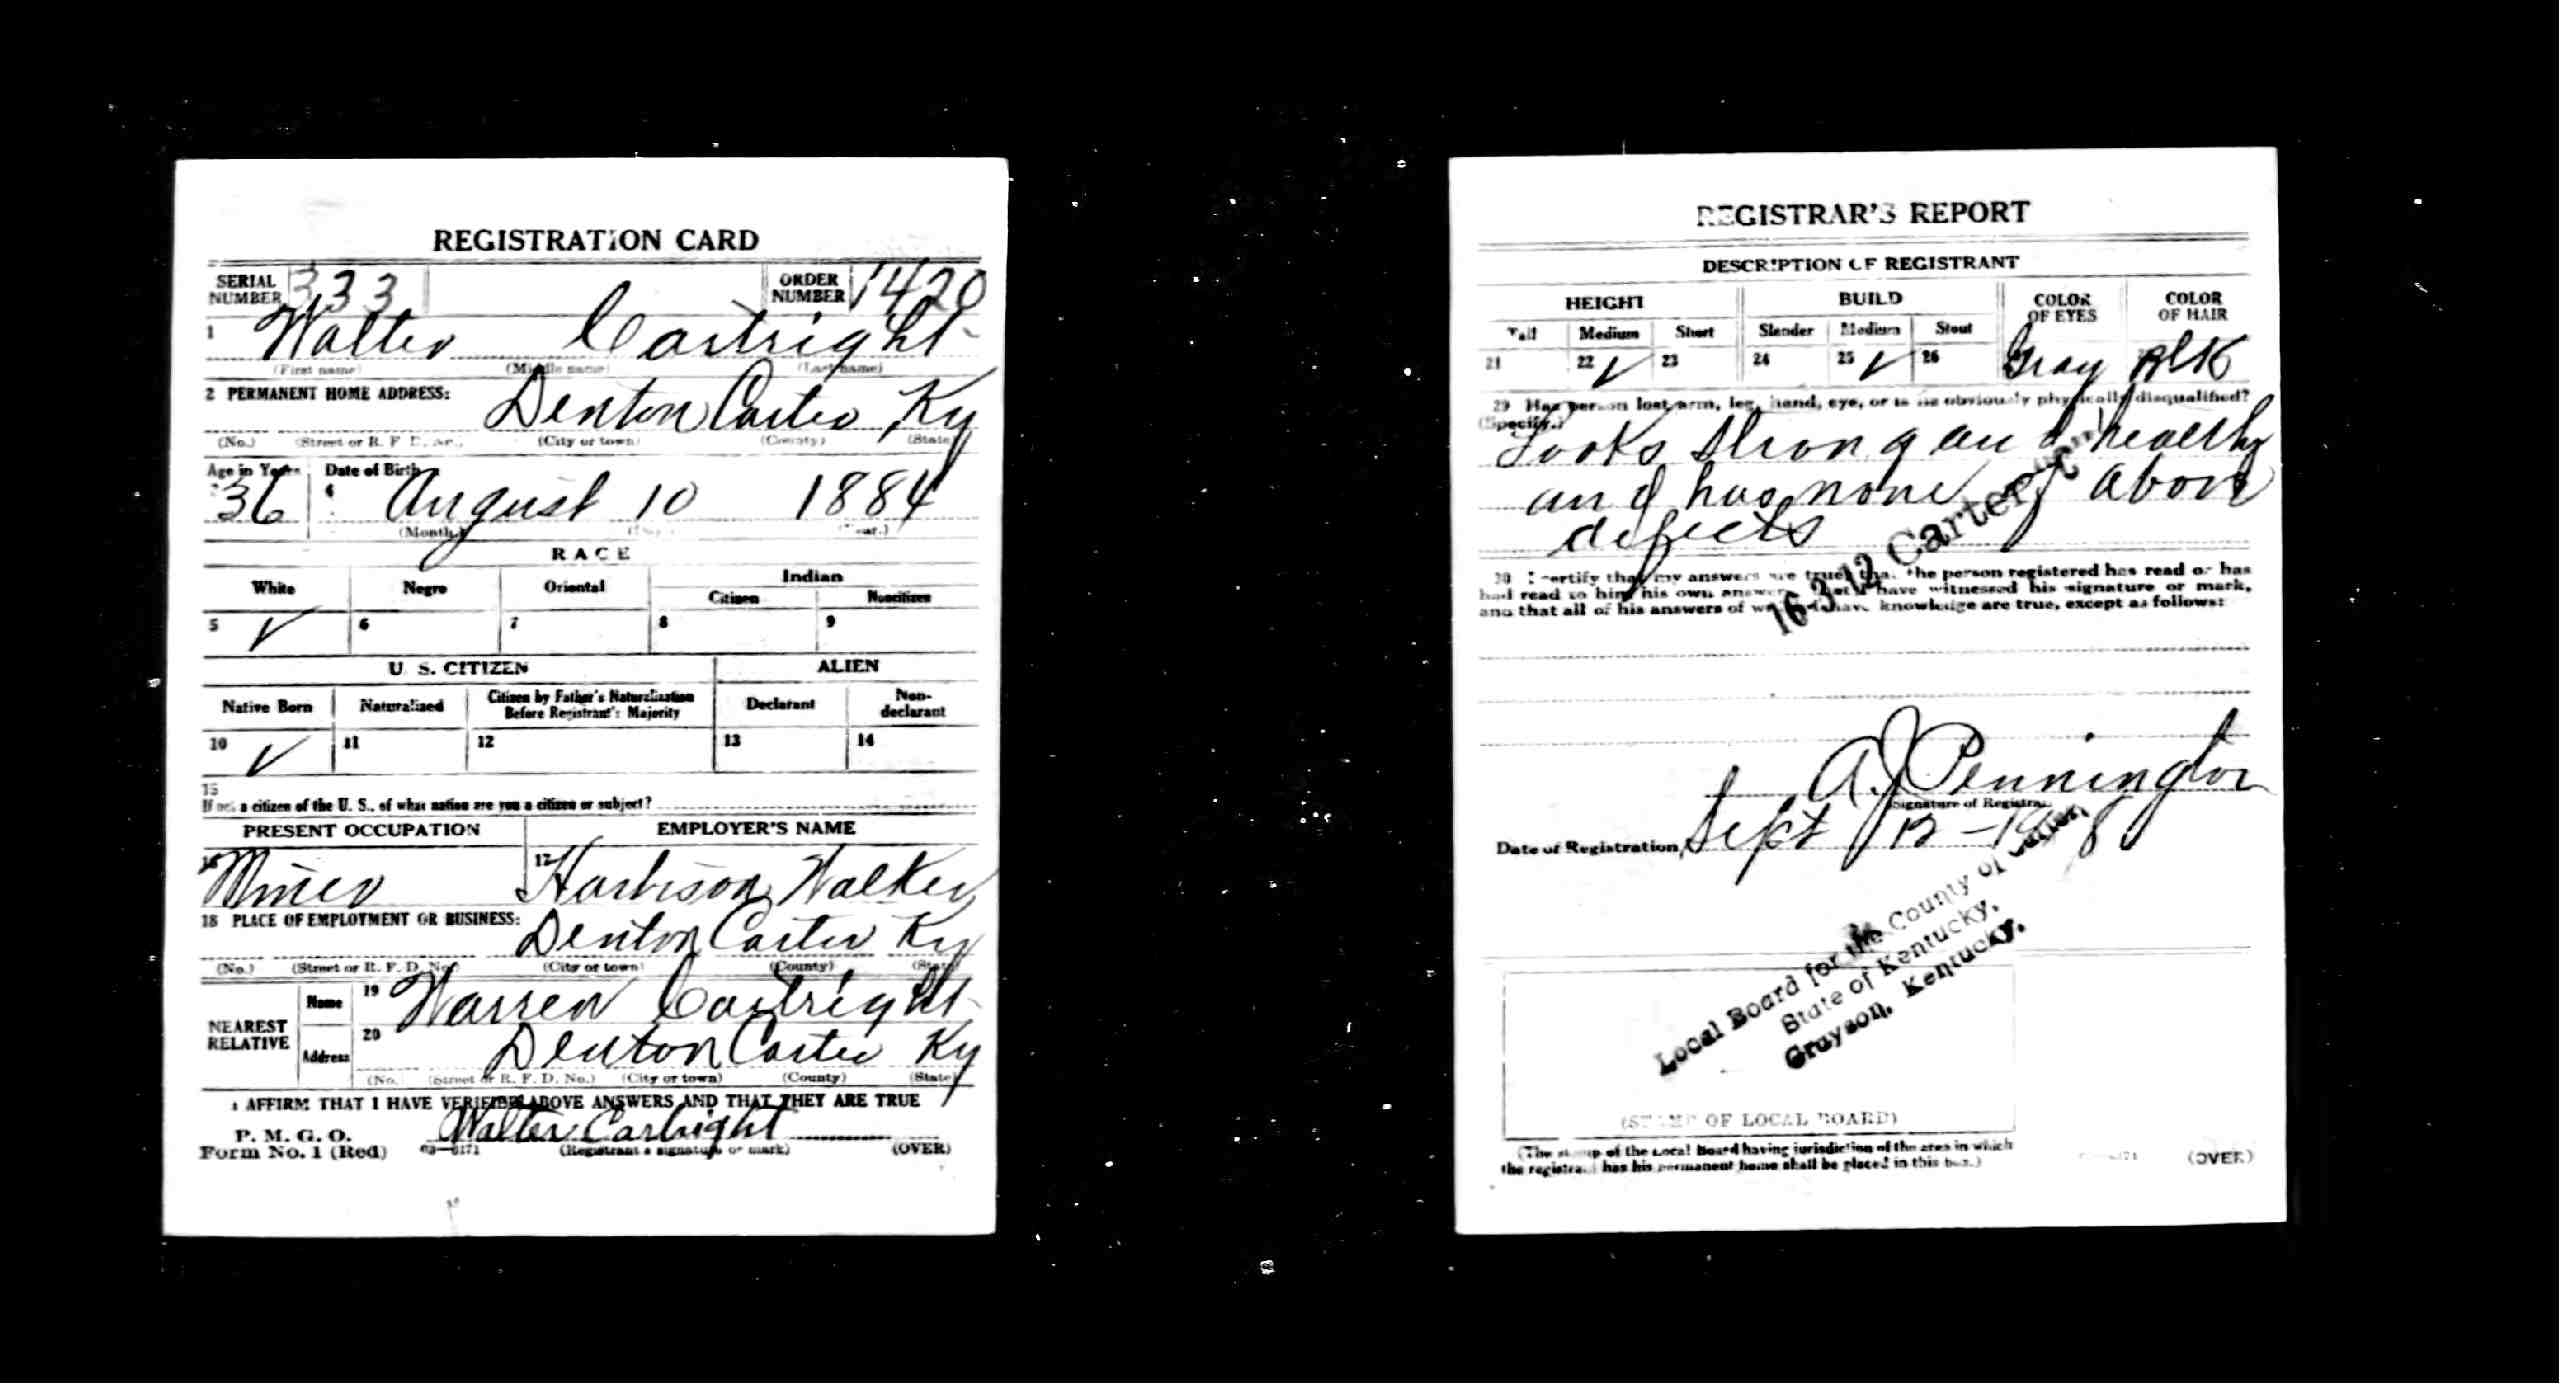 REGISTRATION CARD
SERIAL NUMBER 333 ORDER NUMBER 1420
1 Walter Cartright
(First name) (Middle name) (Last name)
2 PERMANENT HOME ADDRESS: Denton Carter Ky
(No.) (Street or R. F. D. No.) (City or town) (County) (State)
Age in Years Date of Birth
36 4 August 10 1884
(Month) (Day) (Year.)
RACE
White Negro Oriental Indian
Citizen Noncitizen
5 ✓ 6 7 8 9
U. S. CITIZEN ALIEN
Native Born Naturalized Citizen by Father's Naturalization Before Registrant's Majority Declarant Non-declarant
10 ✓ 11 12 13 14
15
If not a citizen of the U. S., of what nation are you a citizen or subject?
PRESENT OCCUPATION EMPLOYER'S NAME
16 Miner 17 Harbison Walker
18 PLACE OF EMPLOYMENT OR BUSINESS: Denton Carter Ky
(No.) (Street or R. F. D. No.) (City or town) (County) (State)
NEAREST RELATIVE Name 19 Warren Cartright
Address 20 Denton Carter Ky
(No.) (Street or R. F. D. No.) (City or town) (County) (State)
I AFFIRM THAT I HAVE VERIFIED ABOVE ANSWERS AND THAT THEY ARE TRUE
P. M. G. O.
Form No. 1 (Red) Walter Cartright
(Registrant's signature or mark) (OVER)
REGISTRAR'S REPORT
DESCRIPTION OF REGISTRANT
HEIGHT BUILD COLOR OF EYES COLOR OF HAIR
Tall Medium Short Slender Medium Stout
21 22 ✓ 23 24 25 ✓ 26 Gray Blk
29 Has person lost arm, leg, hand, eye, or is he obviously physically disqualified?
(Specify.)
Looks Strong and healthy
and has none of above
defects
16-3-12 Carter
30 I certify that my answers are true; that the person registered has read or has
had read to him his own answers; that I have witnessed his signature or mark,
and that all of his answers of which I have knowledge are true, except as follows:
A. J. Pennington
(Signature of Registrar)
Date of Registration Sept 12 - 1918
Local Board for the County of Carter,
State of Kentucky,
Grayson, Kentucky.
(STAMP OF LOCAL BOARD)
(The stamp of the Local Board having jurisdiction of the area in which
the registrant has his permanent home shall be placed in this box.)
(OVER)